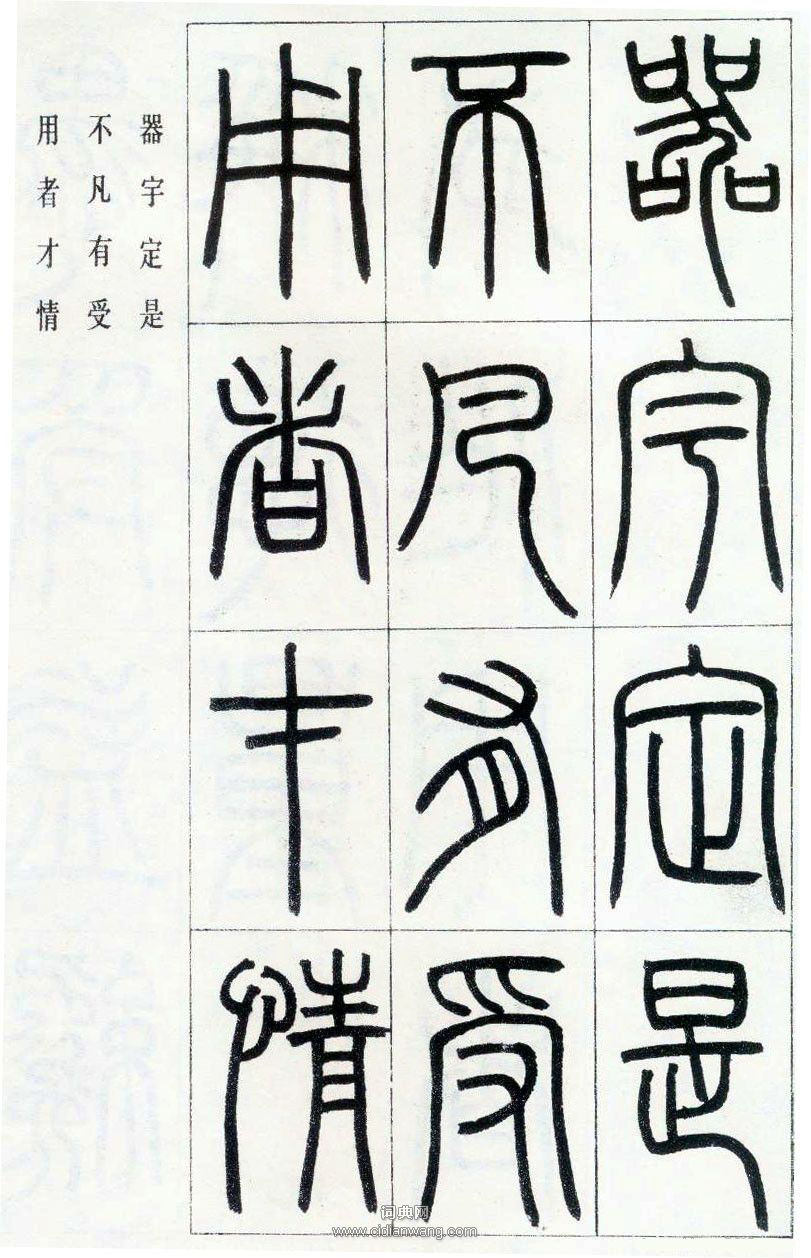 器宇定是
不凡有受
用者才情
器宇定是
不凡有受
用者才情
词典网
www.cidianwang.com